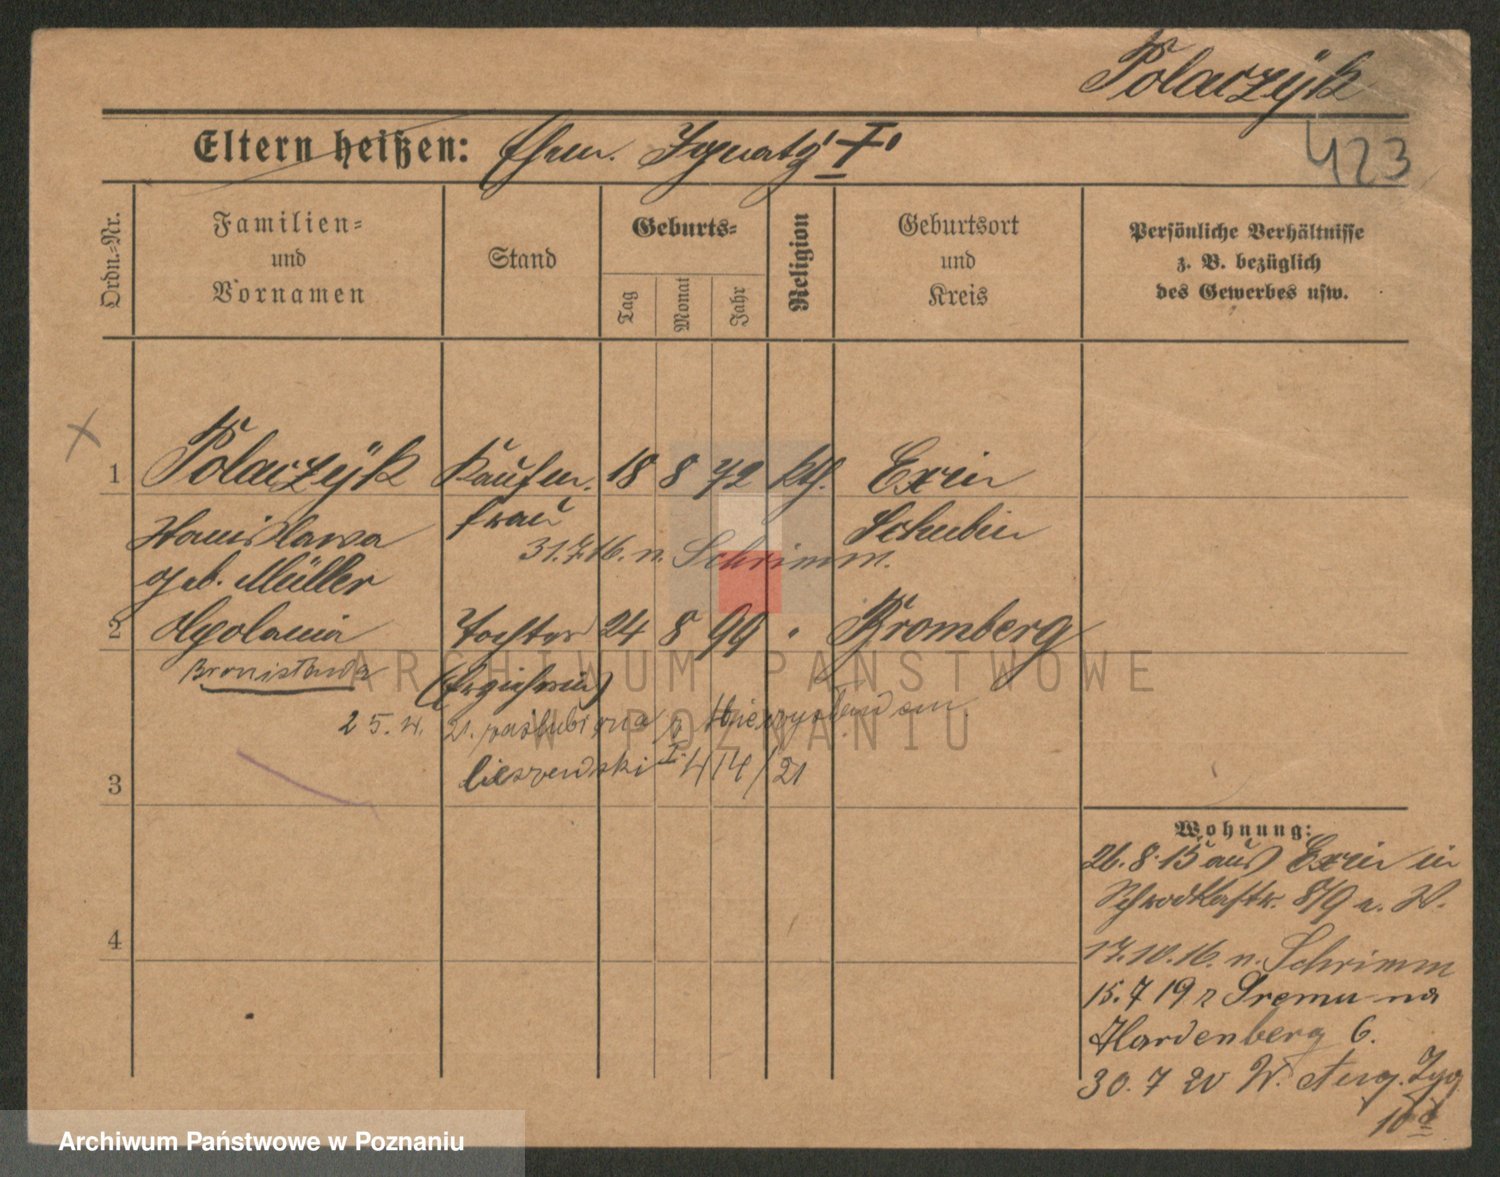 Polaczÿk
Eltern heißen: Ehem. Ignatz I.
423
Ordn.-Nr.
Familien=
und
Vornamen
Stand
Geburts=
Tag
Monat
Jahr
Religion
Geburtsort
und
Kreis
Persönliche Verhältnisse
z. B. bezüglich
des Gewerbes usw.
1 Polaczÿk Kaufm. 18 8 72 kth. Exin
Stanislawa frau Schubin
31.7.16. n. Schrimm.
geb. Müller
2 Apolania Tochter 24 8 99 " Bromberg
Bronisława (Erzieherin)
25. 4. 21. zaślubiona z
I. 414/21
3
4
Wohnung:
26. 8. 15 aus Exin in
Schrodkastr. 8/9 a. W.
17.10.16. n. Schrimm
15. 7 19 z Śremu na
Hardenberg 6.
30. 7 20 W.
10a
ARCHIWUM PAŃSTWOWE
W POZNANIU
Archiwum Państwowe w Poznaniu